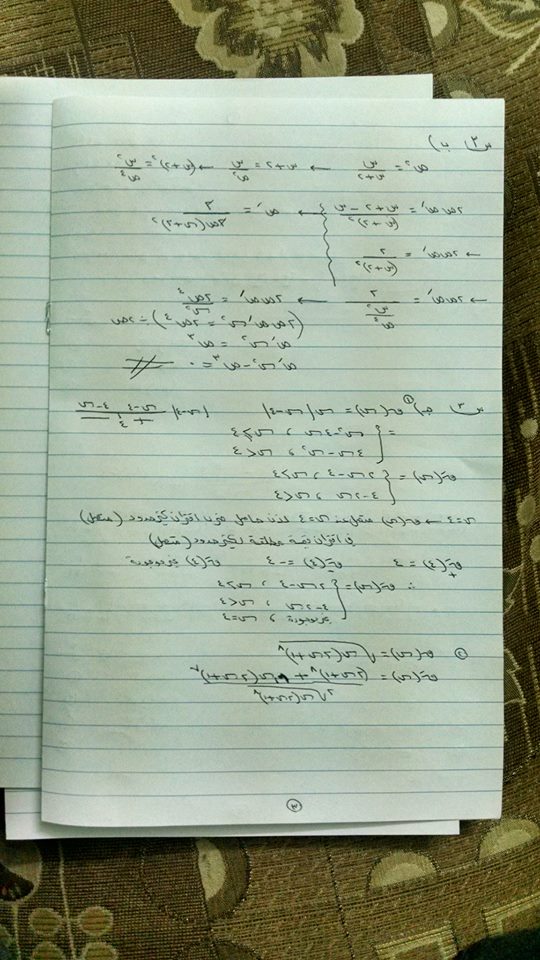 س٢ ب)
ص٢ = س/(س+٢) ← س+٢ = س/ص٢ ← (س+٢)٢ = س٢/ص٤
٢ص صَ = (س+٢-س)/(س+٢)٢ ← صَ = ٢/٢ص(س+٢)٢
← ٢ص صَ = ٢/(س+٢)٢
← ٢ص صَ = ٢/(س٢/ص٤) ← ٢ص صَ = ٢ص٤/س٢
(٢ص صَ س٢ = ٢ص٤) ÷ ٢ص
صَ س٢ = ص٣
صَ س٢ - ص٣ = ٠
س٢ جـ) ① ق(س) = س|س-٤| |س-٤| ٤-س ٤ س-٤
= { س٢-٤س ، س≥٤
٤س-س٢ ، س<٤
قَ(س) = { ٢س-٤ ، س>٤
٤-٢س ، س<٤
س=٤ ← ق(س) متصل عند س=٤ لأنه حاصل ضرب اقتران كثير حدود (متصل)
في اقتران قيمة مطلقة لكثير حدود (متصل)
قَ(٤)+ = ٤ قَ(٤)- = -٤ قَ(٤) غير موجودة
∴ قَ(س) = { ٢س-٤ ، س>٤
٤-٢س ، س<٤
غير موجودة ، س=٤
② ق(س) = √(س(٢س+١)٨)
قَ(س) = ((٢س+١)٨ + س(٢س+١)٧)/(٢√(س(٢س+١)٨))
٣